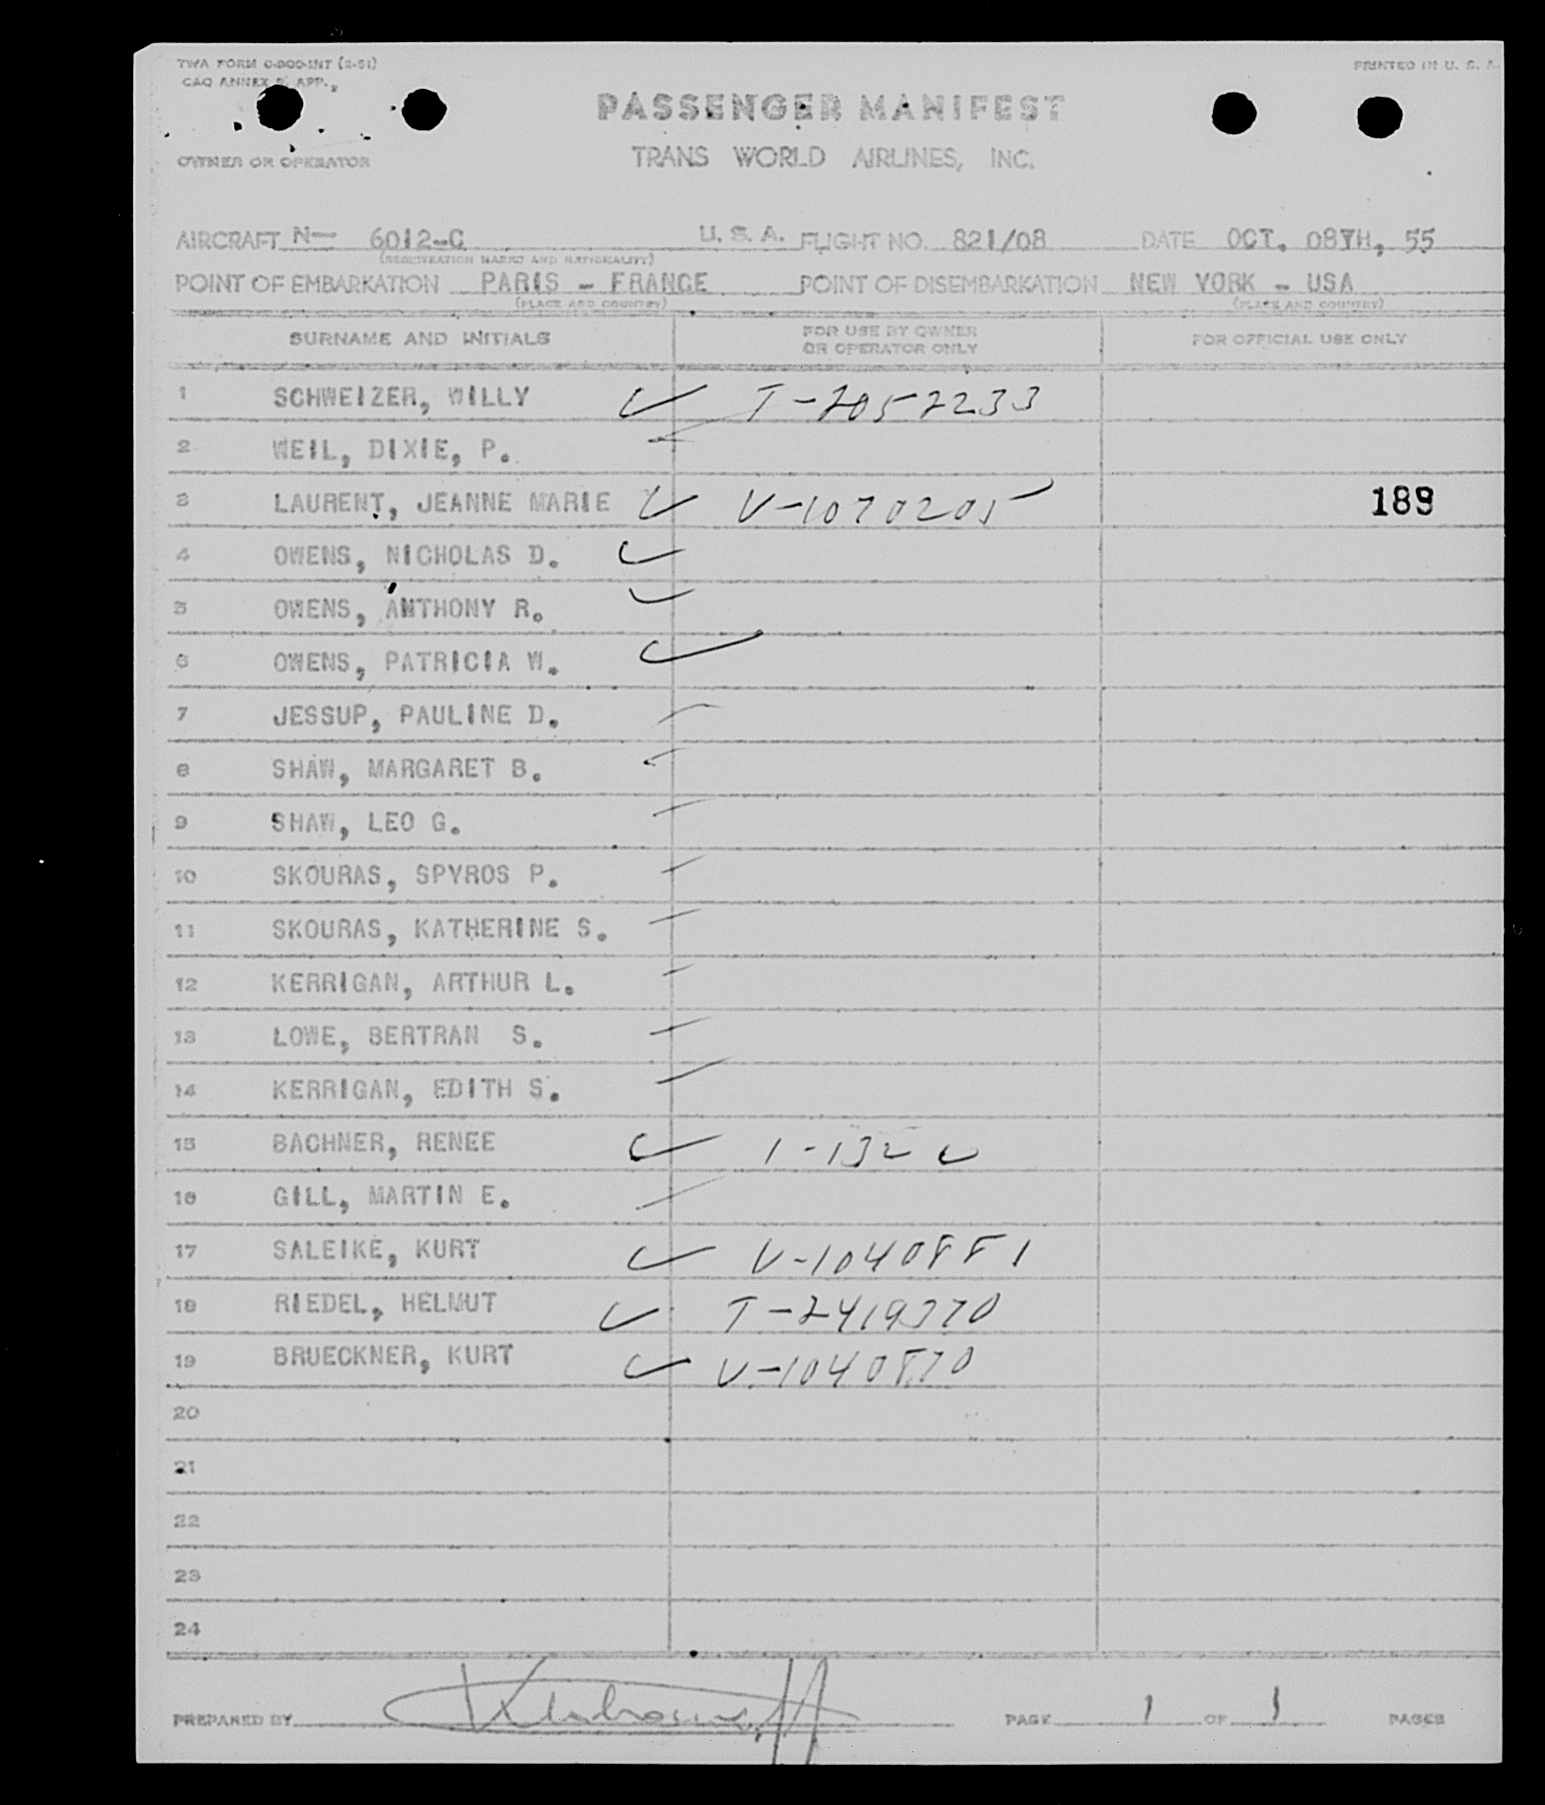 TWA FORM
CAO ANNEX 9, APP.,
PRINTED IN U. S. A.
PASSENGER MANIFEST
OWNER OR OPERATOR
TRANS WORLD AIRLINES, INC.
AIRCRAFT N— 6012-C U. S. A. FLIGHT NO. 821/08 DATE OCT. 08TH, 55
(REGISTRATION MARKS AND NATIONALITY)
POINT OF EMBARKATION PARIS - FRANCE POINT OF DISEMBARKATION NEW YORK - USA
(PLACE AND COUNTRY) (PLACE AND COUNTRY)
SURNAME AND INITIALS FOR USE BY OWNER OR OPERATOR ONLY FOR OFFICIAL USE ONLY
1 SCHWEIZER, WILLY ✓ T-2052233
2 WEIL, DIXIE, P.
3 LAURENT, JEANNE MARIE ✓ V-1070205 189
4 OWENS, NICHOLAS D. ✓
5 OWENS, ANTHONY R. ✓
6 OWENS, PATRICIA W. ✓
7 JESSUP, PAULINE D.
8 SHAW, MARGARET B.
9 SHAW, LEO G.
10 SKOURAS, SPYROS P.
11 SKOURAS, KATHERINE S.
12 KERRIGAN, ARTHUR L.
13 LOWE, BERTRAN S.
14 KERRIGAN, EDITH S.
15 BACHNER, RENEE ✓
16 GILL, MARTIN E.
17 SALEIKE, KURT ✓ V-1040881
18 RIEDEL, HELMUT ✓ T-2419370
19 BRUECKNER, KURT ✓ V-1040870
20
21
22
23
24
PREPARED BY PAGE 1 OF 1 PAGES